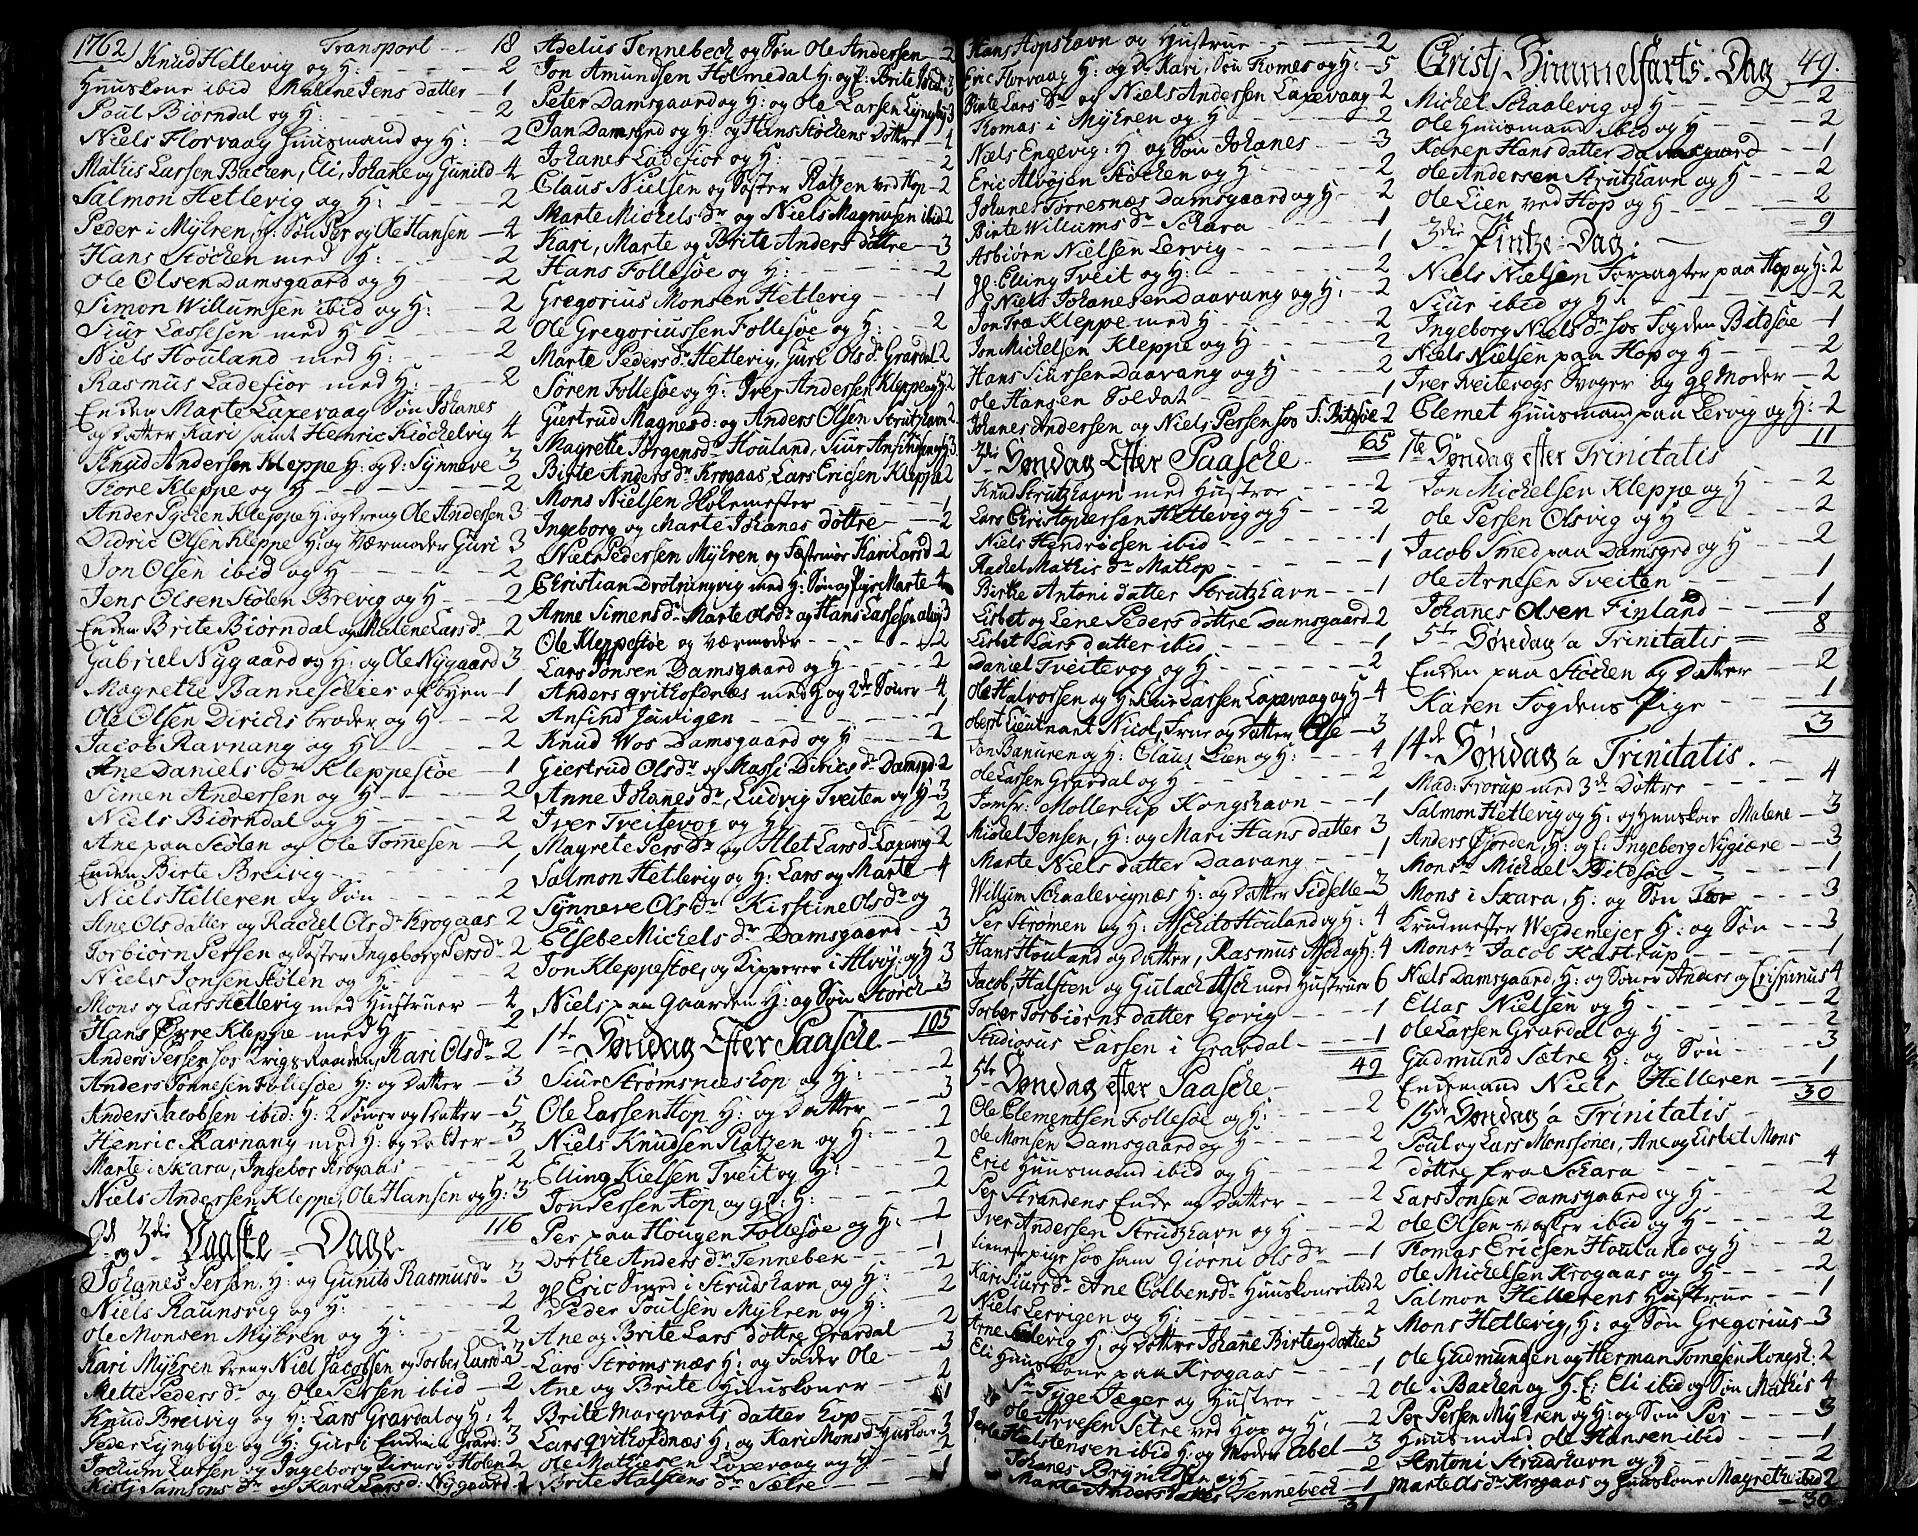 1762 Transport -- 18
Knud Hetlevig og H: -- 2
Huuskone ibid Malene Jens datter -- 1
Poul Biørndal og H: -- 2
Niels Florvaag Huusmand og H: -- 2
Mathis Larsen Backen, Eli, Johane og Gunild 4
Salmon Hetlevig og H: -- 2
Peder i Myhren, H. Søn Per og Ole Hansen -- 4
Hans Støchen med H: -- 2
Ole Olsen Damsgaard og H -- 2
Simon Willumsen ibid og H: -- 2
Siur Lassesen med H -- 2
Niels Houland med H: -- 2
Rasmus Ladefior med H: -- 2
Enden Marte Laxevaag Søn Johanes
og datter Kari samt Henric Kiøchelvig 4
Knud Andersen Kleppe H: og D: Synneve 3
Tore Kleppe og H -- 2
Ander Kleppe H: og Dreng Ole Andersen 3
Didric Olsen Kleppe H: og Værmoder Guri 3
Jon Olsen ibid og H -- 2
Jens Olsen Stølen Brevig og H. -- 2
Enden Brite Biørndal og Malene Lars dr. -- 2
Gabriel Nygaard og H: og Ole Nygaard 3
Magrethe Bannesehier af byen -- 1
Ole Olsen Dirichs broder og H -- 2
Jacob Ravnang og H -- 2
Ane Daniels dr Kleppestøe -- 1
Simen Andersen og H -- 2
Niels Biørndal og H -- 2
Ane paa Stølen og Ole Tomesen -- 2
Enden Birte Breivig -- 1
Niels Helleren og Søn -- 2
Ane Olsdatter og Rachel Ols dr Krogaas 2
Torbiørn Persen og Søster Ingeborg Persdr -- 2
Niels Jonsen Stølen og H -- 2
Mons og Lars Hetlevig med Hustruer -- 4
Hans Øvre Kleppe med H -- 2
Anders Persen hos Krigsraaden, Kari Olsdr -- 2
Anders Tønnesen Follesøe H: og Datter -- 3
Anders Jacobsen ibid: H: 2 Sønner og Datter -- 5
Henric Ravnang med H: og Datter -- 3
Marte i Skara, Ingebor Krogaas -- 2
Niels Andersen Kleppe, Ole Hansen og H: 3
116
2d og 3die Paaske-Dage
Johanes Persen, H: og Gunild Rasmusdr 3
Niels Raunsvig og H: -- 2
Ole Monsen Myhren og H: -- 2
Kari Myhren dreng Niels Jacobsen og Torbes Larsd -- 3
Mette Peders dr og Ole Persen ibid -- 2
Knud Breivig og H: Lars Grardal og H: 4
Peder Lyngbye og H: Guri Enden i Grard: 3
Jochum Larsen og Ingeborg Holen 2
Kisti Samsons dr og Kari Lars d. Nygaard -- 2
Adelus Tennebech og Søn Ole Andersen -- 2
Jon Amundsen Holmedal H: og f: Brite ibid 3
Peter Damsgaard og H: og Ole Larsen Lyngby 3
Jan Damsgrd og H: og Hans Støchens Dotter -- 4
Johanes Ladefior og H -- 2
Claus Nielsen og Søster Platzen ved Hop -- 2
Marte Michels dr og Niels Magnusen ibid 2
Kari, Marte og Brite Anders døttre -- 3
Hans Follesøe og H: -- 2
Gregorius Monsen Hetlevig -- 1
Ole Gregoriussen Follesøe og H: -- 2
Marte Peders dr Hetlevig, Guri Ols dr Grardal 2
Søren Follesøe og H: Iver Andersen Kleppe og H 2
Giertrud Magnesd: og Anders Olsen Strutzhavn 2
Magrette Jørgens dr Houland, Siur Anfindsen og H 3
Birte Anders dr Krogaas, Lars Ericsen Kleppe 2
Mons Nielsen Holemester -- 1
Ingeborg og Marte Johanes døttre -- 2
Niels Pedersen Myhren og Festemøe Kari Larsd 2
Christian Drotningvig med H: Søn og Pige Marte -- 4
Anne Simens dr Marte Ols dr og Hans Lassesen 3
Ole Kleppestøe og Værmoder -- 2
Lars Jonsen Damsgaard og H -- 2
Anders qvithofdnæs med H og 2de Sønner -- 4
Anfind Juvigen -- 1
Knud Wos Damsgaard og H -- 2
Giertrud Olsdr og Massi Dirics dr Damsgd 2
Anne Johanes dr, Ludvig Tveiten og H -- 3
Iver Tveitevog og H -- 2
Magrete Pers dr og Illet Lars d: Laxevog -- 2
Salmon Hetlevig og H: Lars og Marte -- 4
Synneve Ols dr Kirstine Ols dr og
Elsebe Michels dr Damsgaard -- 3
Jon Kleppestøe, og Kipperen i Alvøj og H 3
Niels paa Gaarden H: og Søn Størch -- 3
105
1te Søndag Efter Paasche
Siur Strømsnæs hop og H: -- 2
Ole Larsen Hop H: og Datter -- 3
Niels Knudsen Platzen og H: -- 2
Elling Kielsen Tveit og H: -- 2
Jon Persen Hop og gl: H: -- 2
Per paa Hougen Follesøe og H: -- 2
Dorthe Anders dr Tennebek -- 1
gl Eric Smed i Strudshavn og H: -- 2
Peder Poulsen Myhren og H: -- 2
Ane og Brite Lars døttre Grardal -- 2
Lars Strømsnæs H: og Fader Ole -- 3
Ane og Brite Huuskoner -- 2
Brite Marqvarts datter hop -- 1
Lars qvithofdnæs H: og Kari Mons dr Huskone 3
Ole Mathiesen Laxevaag og H: -- 2
Brite Halstens dr Sætre -- 1
Hans Hopshavn og Hustrue -- 2
Eric Florvaag H: og Dr Kari, Søn Tomes og H: -- 5
Birte Lars Dr og Niels Andersen Laxevaag -- 2
Thomas i Myhren og H -- 2
Niels Engevig: H og Søn Johanes -- 3
Eric Alvøjen Støchen og H -- 2
Johanes Torresnæs Damsgaard og H -- 2
Birte Willums dr Schara -- 1
Asbiørn Nielsen Lervig -- 1
gl: Elling Tveit og H: -- 2
Niels Johanesen Daavang og H: -- 2
Jon Træ Kleppe med H -- 2
Jon Michelsen Kleppe og H -- 2
Hans Siursen Daavang og H -- 2
Ole Hansen Soldat -- 1
Johanes Andersen og Niels Persen hos S. Bildsøe -- 2
65
3die Søndag Efter Paasche
Knud Strutzhavn med Hustroe -- 2
Lars Christophersen Hetlevig og H -- 2
Niels Hendrichsen ibid -- 1
Rachel Mathis dr Mathop -- 1
Birthe Antoni datter Strutzhavn -- 1
Lisbet og Lene Peders døttre Damsgaard 2
Lisbet Lars datter ibid -- 1
Daniel Tveitevog og H -- 2
Ole Halvorsen og H: Siur Larsen Laxevaag og H -- 4
Oberst Lieutnant Nicol, Frue og Datter Else -- 3
Jon Banuren og H: Claus Lien og H: -- 4
Ole Larsen Grardal og H -- 2
Jomfr: Mollerup Kongshavn -- 1
Michel Jensen, H: og Mari Hans datter 3
Marte Niels datter Daavang -- 1
Willum Schaalevignæs H: og Datter Sidselle -- 3
Per Strømen og H: Aschild Houland og H: 4
Hans Houland og datter, Rasmus Asch og H: 4
Jacob, Halsten og Gulach Asch med Hustruer 6
Torber Torbiørns datter Govig -- 1
Studiosus Larsen i Grardal -- 1
49
5te Søndag efter Paasche
Ole Clementsen Follesøe og H: -- 2
Ole Monsen Damsgaard og H -- 2
Eric Huusmand ibid og H -- 2
Per Strandens Enke og Datter -- 2
Iver Andersen Strutzhavn og H -- 2
pige hos ham Giørni Ols dr -- 1
Kari Siursdr Ane Colbens dr Huuskone ibid 2
Niels Lervigen og H: -- 2
Arne Schaalevig H: og Døttre Johane Birte og dortke 5
Eli Huuskone paa Krogaas -- 1
Sr Tyge Jæger og Hustroe -- 2
Ole Arnesen Setre ved Hop og H: -- 2
Halstensen ibid H: og Moder Abel -- 3
Johanes Brynildsen og H -- 2
Marte Anders datter Tennebech -- 1
31
Christj Himmelfarts-Dag 49.
Michel Schaalevig og H -- 2
Ole Huusmand ibid og H -- 2
Karen Hans datter Damsgaard -- 1
Ole Andersen Strutzhavn og H -- 2
Ole Lien ved Hop og H -- 2
9
3die Pintze-Dag.
Niels Nielsen Forpagter paa Hop og H: 2
Siur ibid og H: -- 2
Ingeborg Niels dr hos Fogden Bildsøe -- 1
Niels Nielsen paa Hop og H -- 2
Iver Tveitevogs Svoger og gl Moder -- 2
Clemet Huusmand paa Lervig og H: -- 2
11
1te Søndag efter Trinitatis
Jon Michelsen Kleppe og H -- 2
Ole Persen Olsvig og H -- 2
Jacob Smed paa Damsgrd og H -- 2
Ole Arnesen Tveiten -- 1
Johanes Olsen Finland -- 1
8
5te Søndag a Trinitatis
Enden paa Støchen og Datter -- 2
Karen Fogdens Pige -- 1
3
14de Søndag a Trinitatis.
Mad: Frorup med 3de Døttre -- 4
Salmon Hetlevig og H: og Huuskone Malene -- 3
Anders Fjorden H: og f: Ingeborg Nygiære -- 3
Monsr Michael Bildsøe -- 1
Mons i Skara, H: og Søn -- 3
Krudmester Weydemejer H: og Søn -- 3
Monsr Jacob Kastrup -- 1
Niels Damsgaard, H: og Sønner Anders og Crispinus 4
Elias Nielsen og H -- 2
Ole Larsen Grardal og H -- 2
Gudmund Sætre H: og Søn -- 3
Endemand Niels Helleren -- 1
30
15de Søndag a Trinitatis
Poul og Lars Monssøner, Ane og Lisbet Mons
døttre fra Schara -- 4
Lars Jonsen Damsgaard og H -- 2
Ole Olsen ibid og H -- 2
Thomas Ericsen Houland og H -- 2
Ole Michelsen Krogaas og H -- 2
Salmon Hellerens Hustrue -- 1
Mons Hetlevig, H: og Søn Gregorius -- 3
Ole Gudmunsen og Herman Tomesen Kongsh: 2
Ole i Bachen og H. f: Eli ibid og Søn Mathis 4
Per Persen Myhren og H: og Søn Per -- 3
Huusmand Ole Hansen ibid -- 1
Antoni Strudshavn og H -- 2
Marte Ols dr Krogaas og Huuskone Magrethe ibid 2
30